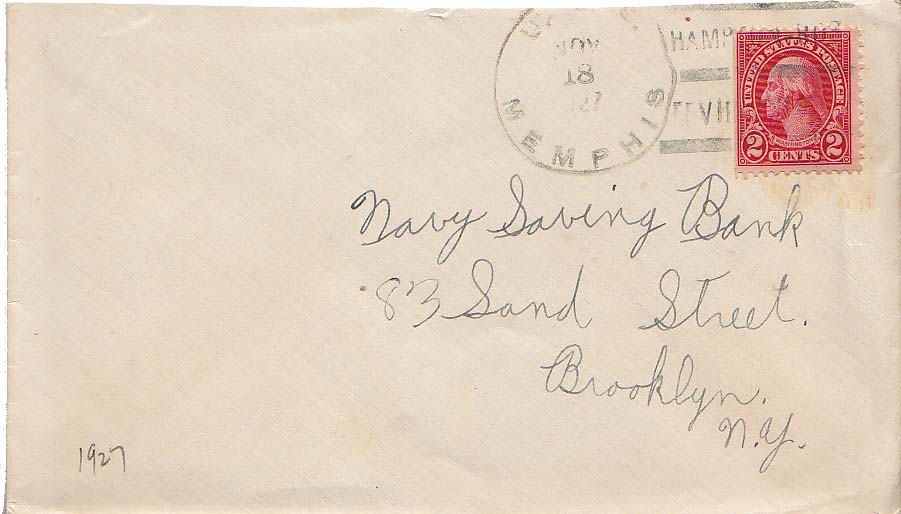 U.S.S.
MEMPHIS
NOV
18
1927
UNITED STATES POSTAGE
WASHINGTON
2 CENTS 2
Navy Saving Bank
83 Sand Street.
Brooklyn.
N.Y.
1927